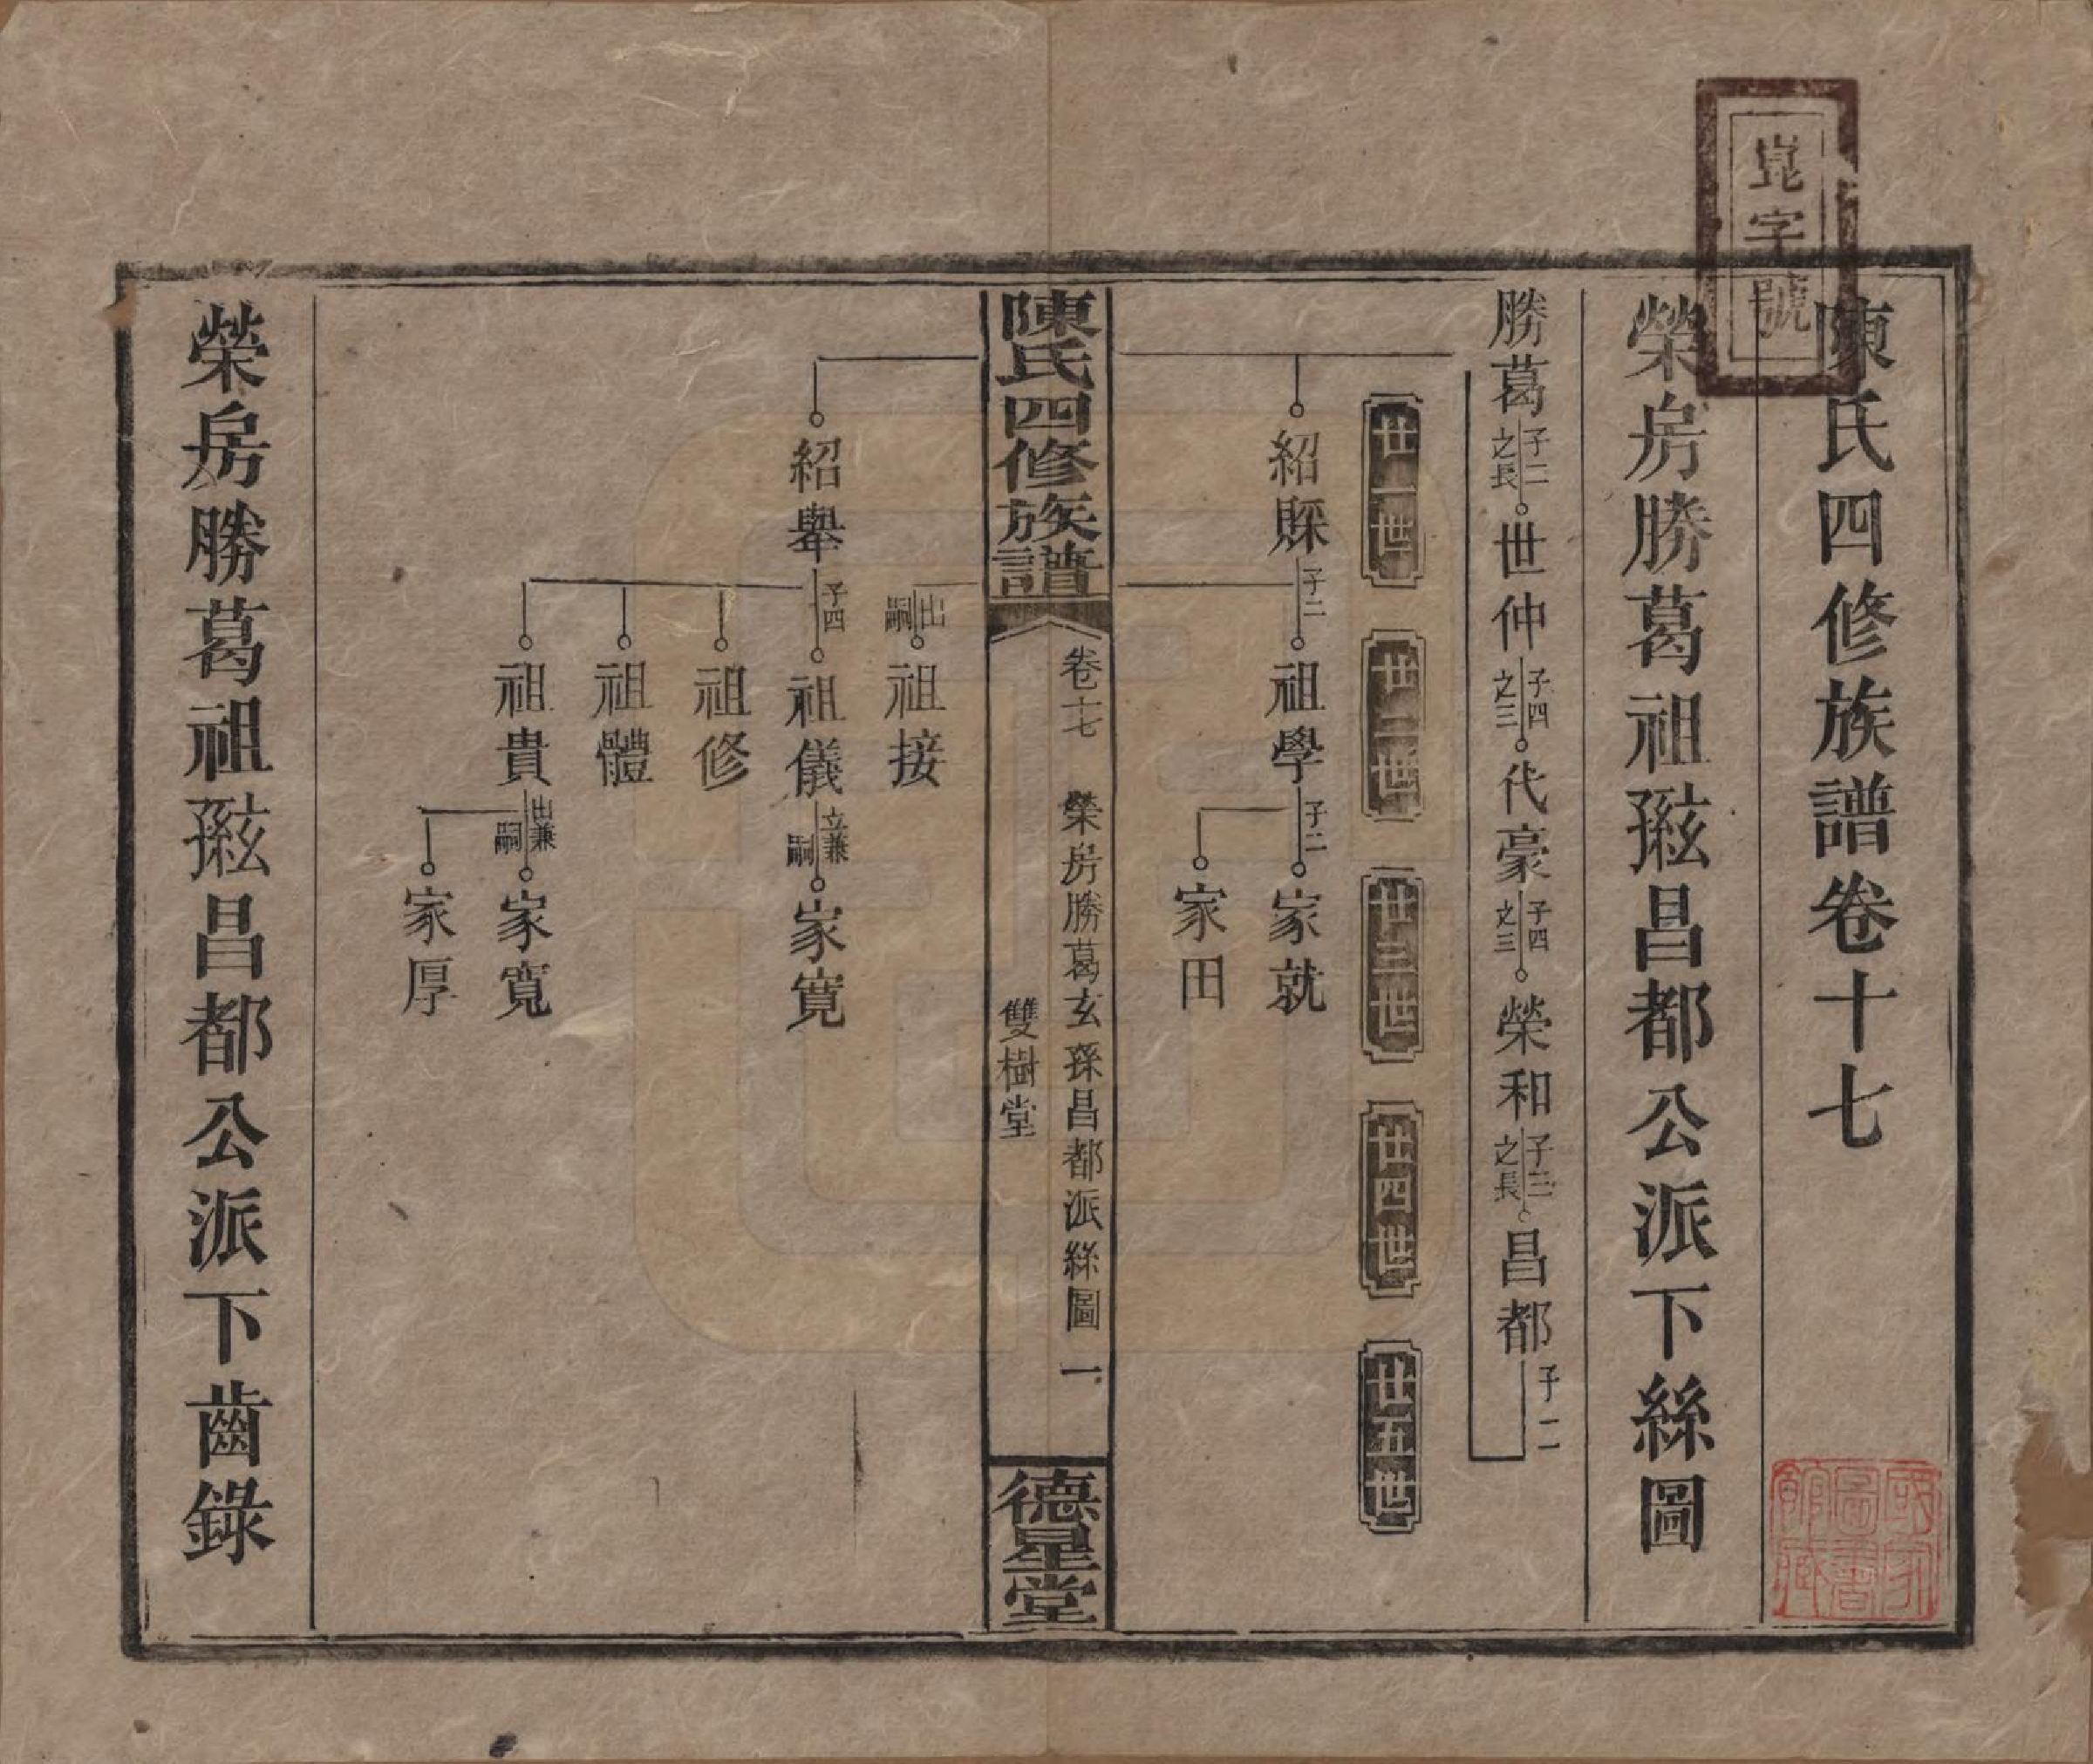 崑字號
陳氏四修族譜卷十七
榮房勝葛祖玄孫昌都公派下絲圖
勝葛 子二之長 世仲 子四之三 代豪 子四之三 榮和 子三之長 昌都 子二
廿一世 廿二世 廿三世 廿四世 廿五世
紹賝 子二 祖學 子二 家就
家田
陳氏四修族譜 卷十七 榮房勝葛玄孫昌都派絲圖 一 雙樹堂 德星堂
祖接 出嗣
紹舉 子四 祖儀 立兼嗣 家寬
祖修
祖體
祖貴 出兼嗣 家寬
家厚
榮房勝葛祖玄孫昌都公派下齒錄
國家圖書館藏